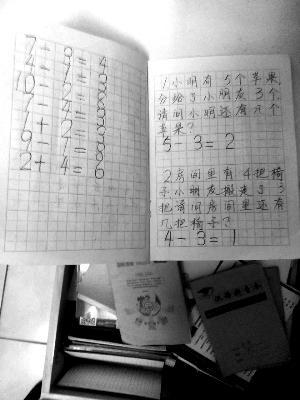 7 - 3 = 4
4 - 1 = 3
10 - 2 = 8
7 - 4 = 3
1 + 2 = 3
9 - 1 = 8
2 + 4 = 6
1小明有5个苹果,
分给了小朋友3个,
请问小明还有几个
苹果?
5 - 3 = 2
2房间里有4把椅
子小朋友搬走了3
把请问房间里还有
几把椅子?
4 - 3 = 1